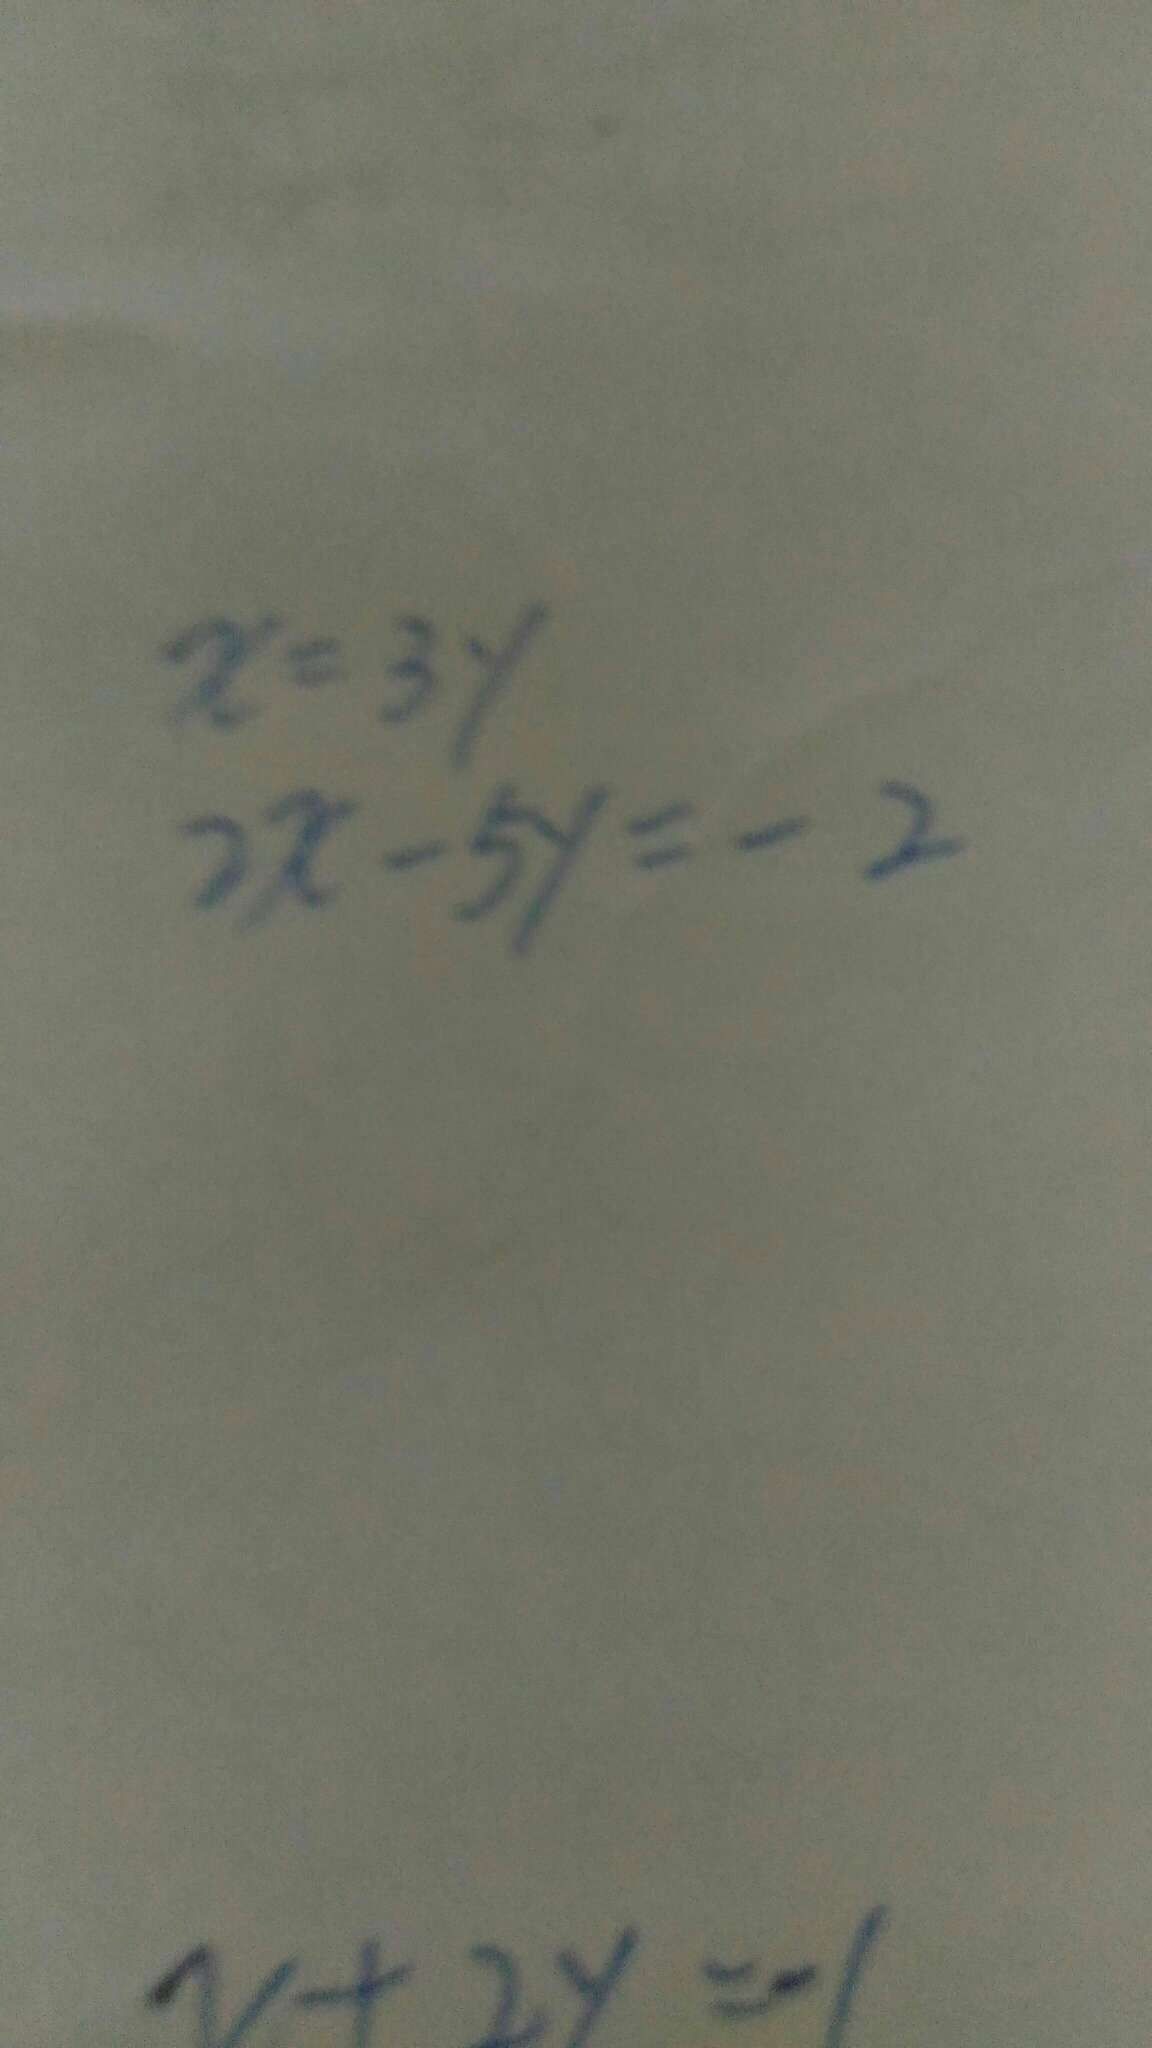 x = 3y
2x - 5y = - 2
x + 2y = -1